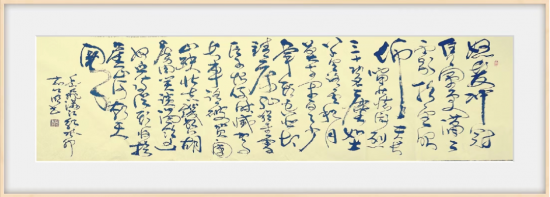 怒髮衝冠
憑闌處瀟瀟
雨歇抬望眼
仰天長
嘯壯懷激烈
三十功名塵與土
八千里路雲和月
莫等閒白了少
年頭空悲切
靖康恥猶未雪
臣子恨何時滅駕
長車踏破賀蘭
山缺壯志飢餐胡
虜肉笑談渴飲匈
奴血待從頭收拾
舊山河朝天
闕
岳飛滿江紅癸卯
書